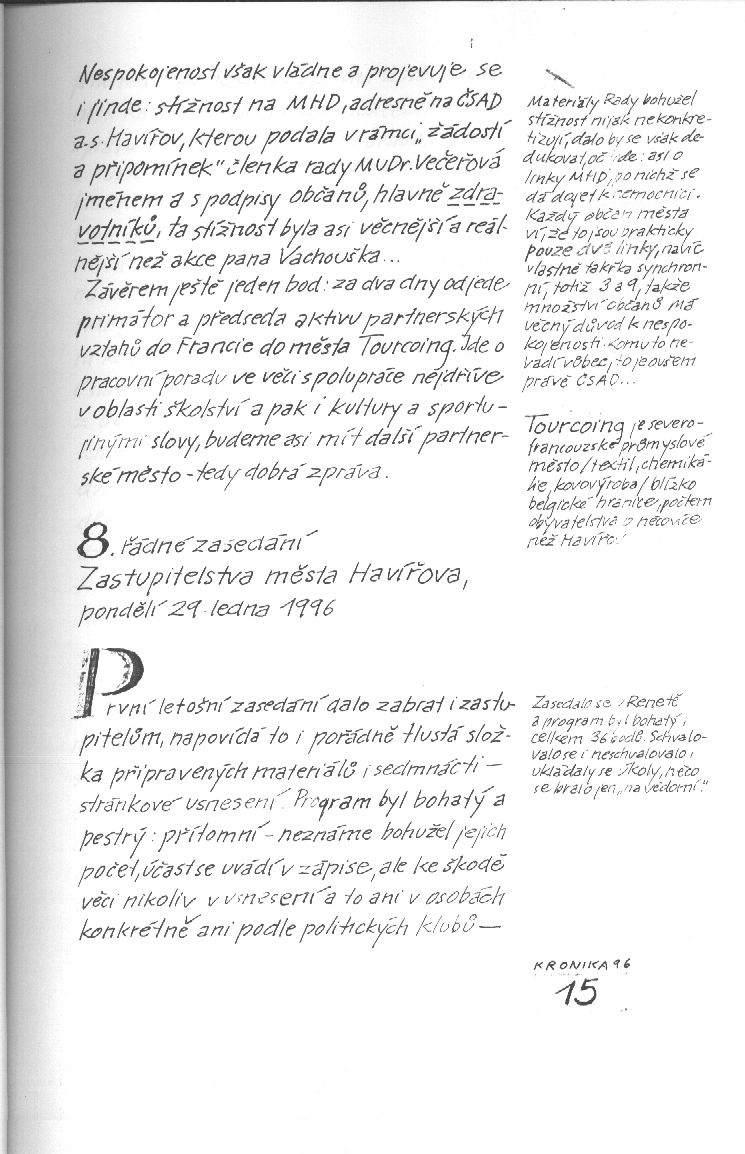 Nespokojenost však vládne a projevuje se
i jinde: stížnost na MHD, adresně na ČSAD
a.s. Havířov, kterou podala v rámci „žádostí
a připomínek" členka rady MUDr. Večeřová
jménem a s podpisy občanů, hlavně zdra-
votníků, ta stížnost byla asi věcnější a reál-
nější než akce pana Vachouška...
Závěrem ještě jeden bod: za dva dny odjede
primátor a předseda aktivu partnerských
vztahů do Francie do města Tourcoing. Jde o
pracovní poradu ve věci spolupráce nejdříve
v oblasti školství a pak i kultury a sportu -
jinými slovy, budeme asi mít další partner-
ské město - tedy dobrá zpráva.
Materiály Rady bohužel
stížnost nijak nekonkre-
tizují, dalo by se však de-
dukovat, oč jde: asi o
linky MHD, po nichž se
dá dojet k nemocnici.
Každý občan města
ví, že to jsou prakticky
pouze dvě linky, navíc
vlastně takřka synchron-
ní, totiž 3 a 9, takže
množství občanů má
věcný důvod k nespo-
kojenosti. Komu to ne-
vadí vůbec, to je ovšem
právě ČSAD...
Tourcoing je severo-
francouzské průmyslové
město/textil, chemiká-
lie, kovovýroba/blízko
belgické hranice, počtem
obyvatelstva o něco více
než Havířov
8. řádné zasedání
Zastupitelstva města Havířova,
pondělí 29. ledna 1996
První letošní zasedání dalo zabrat i zastu-
pitelům, napovídá to i pořádně tlustá slož-
ka připravených materiálů i sedmnácti -
stránkové usnesení. Program byl bohatý a
pestrý: přítomní - neznáme bohužel jejich
počet, účast se uvádí v zápise, ale ke škodě
věci nikoliv v usnesení a to ani v osobách
konkrétně ani podle politických klubů -
Zasedalo se v Renetě
a program byl bohatý,
celkem 36 bodů. Schvalo-
valo se i neschvalovalo,
ukládaly se úkoly, něco
se bralo jen „na vědomí."
KRONIKA 96
15